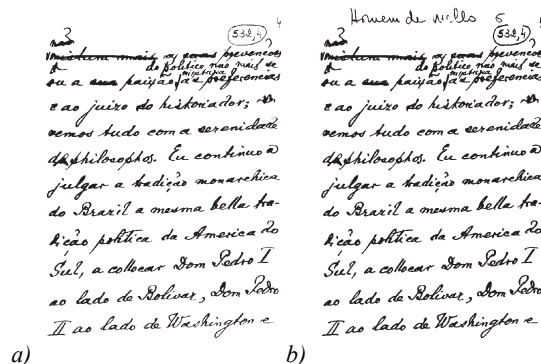 Homem de Mello 5
3 532,4
não
as prevenções
do politico, não mais se
mistura
ou a paixão às preferencias
e ao juizo do historiador;
vemos tudo com a serenidade
de philosophos. Eu continuo a
julgar a tradição monarchica
do Brazil a mesma bella tra-
dicão politica da America do
Sul, a collocar Dom Pedro I
ao lado de Bolivar, Dom Pedro
II ao lado de Washington e
a)
3 532,4
não
as prevenções
do politico, não mais se
mistura
ou a paixão às preferencias
e ao juizo do historiador;
vemos tudo com a serenidade
de philosophos. Eu continuo a
julgar a tradição monarchica
do Brazil a mesma bella tra-
dicão politica da America do
Sul, a collocar Dom Pedro I
ao lado de Bolivar, Dom Pedro
II ao lado de Washington e
b)